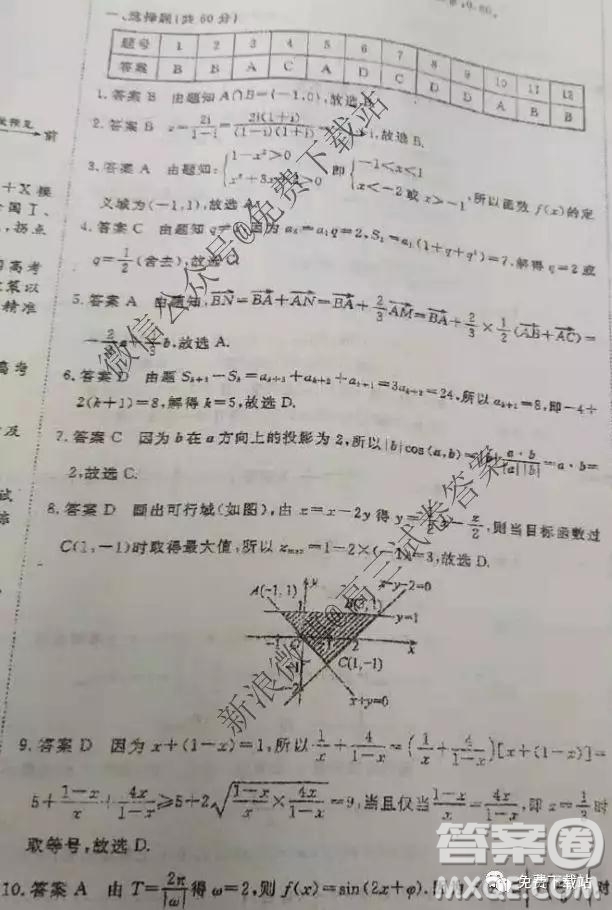 一、选择题(共60分)
题号 1 2 3 4 5 6 7 8 9 10 11 12
答案 B B A C A D C D D A B B
1. 答案 B 由题知 A∩B=(-1,0),故选 B.
2. 答案 B z=2i/(1-i)=2i(1+i)/((1-i)(1+i)) i,故选 B.
前
3. 答案 A 由题知:{1-x²>0 >0 即{-1<x<1 x<-2或x>-1,所以函数 f(x)的定
义域为(-1,1),故选
+X 模
全国 I、
,拐点
4. 答案 C 由题知 因为 a₁q=2,S₃=a₁(1+q+q²)=7,解得 q=2 或
q=1/2(舍去),故选 C.
高考
策以
精准
5. 答案 A 由题知,BN=BA+AN=BA+2/3AM=BA+2/3×1/2(AB+AC)=
b,故选 A.
高考
6. 答案 D 由题 =24,所以 =8,即-4+
2(k+1)=8,解得 k=5,故选 D.
及
7. 答案 C 因为 b 在 a 方向上的投影为 2,所以|b|cos(a,b)= a·b/|a||b| =a·b=
2,故选 C.
试
8. 答案 D 画出可行域(如图),由 z=x-2y 得 y= z/2,则当目标函数过
C(1,-1)时取得最大值,所以 zmax=1-2×(-1)=3,故选 D.
A(-1,1) y x-y-2=0
B(3,1) y=1
-1 1 2 x
-1 C(1,-1)
-2
x+y=0
9. 答案 D 因为 x+(1-x)=1,所以 1/x+4/(1-x)=(1/x+4/(1-x))[x+(1-x)]=
5+(1-x)/x+4x/(1-x)≥5+2√((1-x)/x×4x/(1-x))=9,当且仅当(1-x)/x=4x/(1-x),即 x=1/3时
取等号,故选 D.
10. 答案 A 由 T=2π/|ω|得 ω=2,则 f(x)=sin(2x+φ). 时
微信公众号@免费下载站
新浪微 @高三试卷答案
答案圈
免费下载站